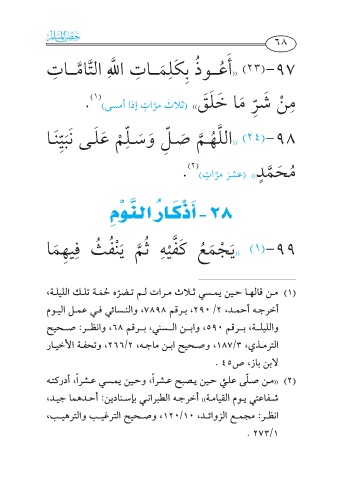 حصن المسلم
٦٨
٩٧-(٢٣) «أَعُـوذُ بِكَلِمَـاتِ اللَّهِ التَّامَّـاتِ
مِنْ شَرِّ مَا خَلَقَ» (ثلاثَ مرَّاتٍ إذا أمسى)(١).
٩٨-(٢٤) «اللَّهُمَّ صَلِّ وَسَلِّمْ عَلَـى نَبَيِّنَـا
مُحَمَّدٍ» (عشرَ مرَّاتٍ)(٢).
٢٨- أَذْكَارُ النَّوْمِ
٩٩-(١) «يَجْمَعُ كَفَّيْهِ ثُمَّ يَنْفُثُ فِيهِمَا
(١) مـن قالهـا حـين يمسـي ثـلاث مـرات لـم تـضرّه حُمَـة تلـك الليلـة،
أخرجـه أحمـد، ٢/ ٢٩٠، بـرقم ٧٨٩٨، والنسـائي فـي عمـل اليـوم
والليلـة، بـرقم ٥٩٠، وابـن السـني، بـرقم ٦٨، وانظـر: صـحيح
الترمـذي، ٣/ ١٨٧، وصـحيح ابـن ماجـه، ٢/ ٢٦٦، وتحفـة الأخيـار
لابن باز، ص٤٥ .
(٢) «مـن صـلَّى علـيَّ حـين يـصبح عـشراً، وحـين يمسـي عـشراً، أدركتـه
شـفاعتي يـوم القيامـة» أخرجـه الطبرانـي بإسـنادين: أحـدهما جيـد،
انظـر: مجمـع الزوائـد، ١٠/ ١٢٠، وصـحيح الترغيـب والترهيـب،
١/ ٢٧٣ .